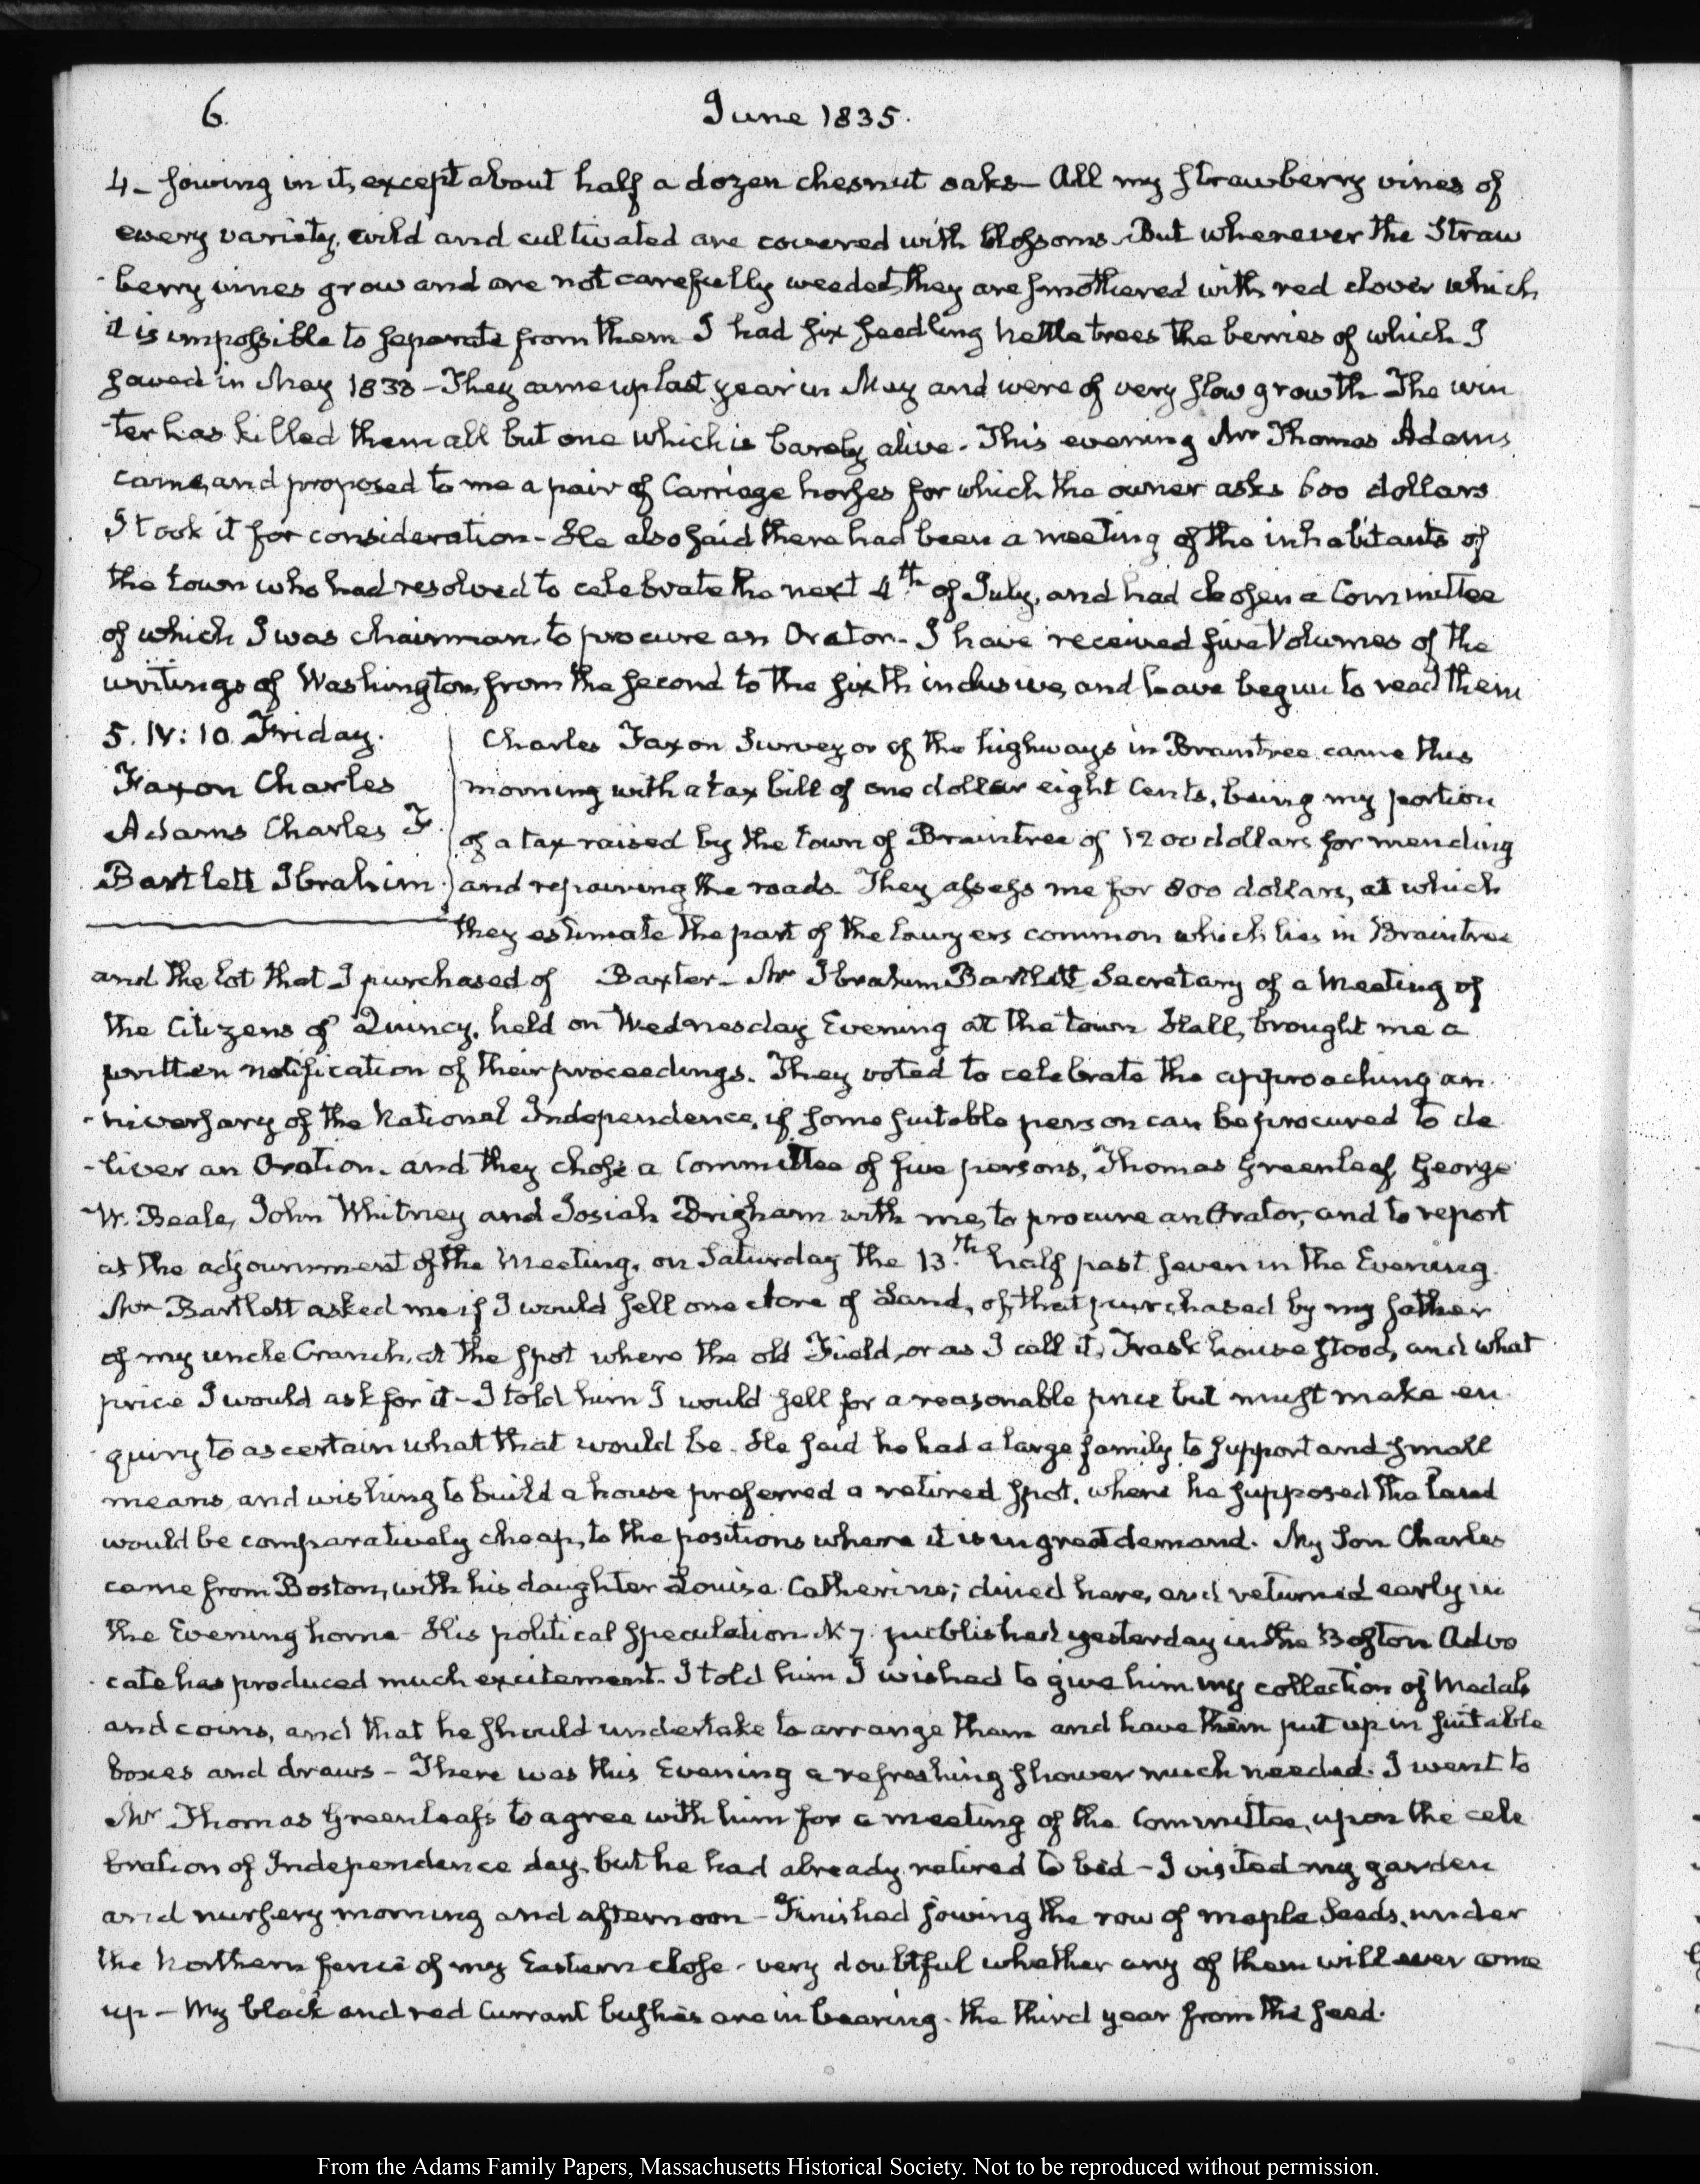 6.
June 1835.
4 – sowing in it, except about half a dozen chesnut oaks – All my strawberry vines of
every variety, wild and cultivated are covered with blossoms. But wherever the Straw
-berry vines grow and are not carefully weeded, they are smothered with red clover which
it is impossible to separate from them. I had six seedling nettle trees the berries of which I
sowed in May 1833 – They came up last year in May and were of very slow growth – The win
-ter has killed them all but one which is barely alive – This evening Mr Thomas Adams
came, and proposed to me a pair of Carriage horses for which the owner asks 600 dollars
I took it for consideration – He also said there had been a meeting of the inhabitants of
the town who had resolved to celebrate the next 4th of July, and had chosen a Committee
of which I was chairman, to procure an Orator – I have received five Volumes of the
writings of Washington, from the second to the sixth inclusive, and have begun to read them
5. IV: 10. Friday.
Faxon Charles
Adams Charles F.
Bartlett Ibrahim.
Charles Faxon Surveyor of the highways in Braintree came this
morning with a tax bill of one dollar eight Cents, being my portion
of a tax raised by the town of Braintree of 1200 dollars for mending
and repairing the roads. They assess me for 800 dollars, at which
they estimate the part of the lawyers common which lies in Braintree
and the lot that I purchased of Baxter – Mr Ibrahim Bartlett Secretary of a Meeting of
the Citizens of Quincy, held on Wednesday Evening at the town Hall, brought me a
written notification of their proceedings. They voted to celebrate the approaching an
-niversary of the National Independence, if some suitable person can be procured to de
-liver an Oration, and they chose a Committee of five persons, Thomas Greenleaf, George
W. Beale, John Whitney and Josiah Brigham with me, to procure an Orator, and to report
at the adjournment of the Meeting, on Saturday the 13th half past seven in the Evening.
Mr Bartlett asked me if I would sell one Acre of Land, of that purchased by my father
of my uncle Cranch, at the spot where the old Field, or as I call it, Trask house stood, and what
price I would ask for it – I told him I would sell for a reasonable price but must make en
-quiry to ascertain what that would be. He said he had a large family to support and small
means, and wishing to build a house preferred a retired spot, where he supposed the land
would be comparatively cheap, to the positions where it is in great demand. My Son Charles
came from Boston, with his daughter Louisa Catherine; dined here, and returned early in
the Evening home – His political speculation N 7. published yesterday in the Boston Advo
-cate has produced much excitement. I told him I wished to give him my collection of Medals
and coins, and that he should undertake to arrange them and have them put up in suitable
boxes and draws – There was this Evening a refreshing shower much needed. I went to
Mr Thomas Greenleaf's to agree with him for a meeting of the Committee, upon the cele
bration of Independence day, but he had already retired to bed – I visited my garden
and nursery morning and afternoon – Finished sowing the row of maple seeds, under
the Northern fence of my Eastern close – very doubtful whether any of them will ever come
up – My black and red Currant bushes are in bearing – the third year from the seed.
From the Adams Family Papers, Massachusetts Historical Society. Not to be reproduced without permission.